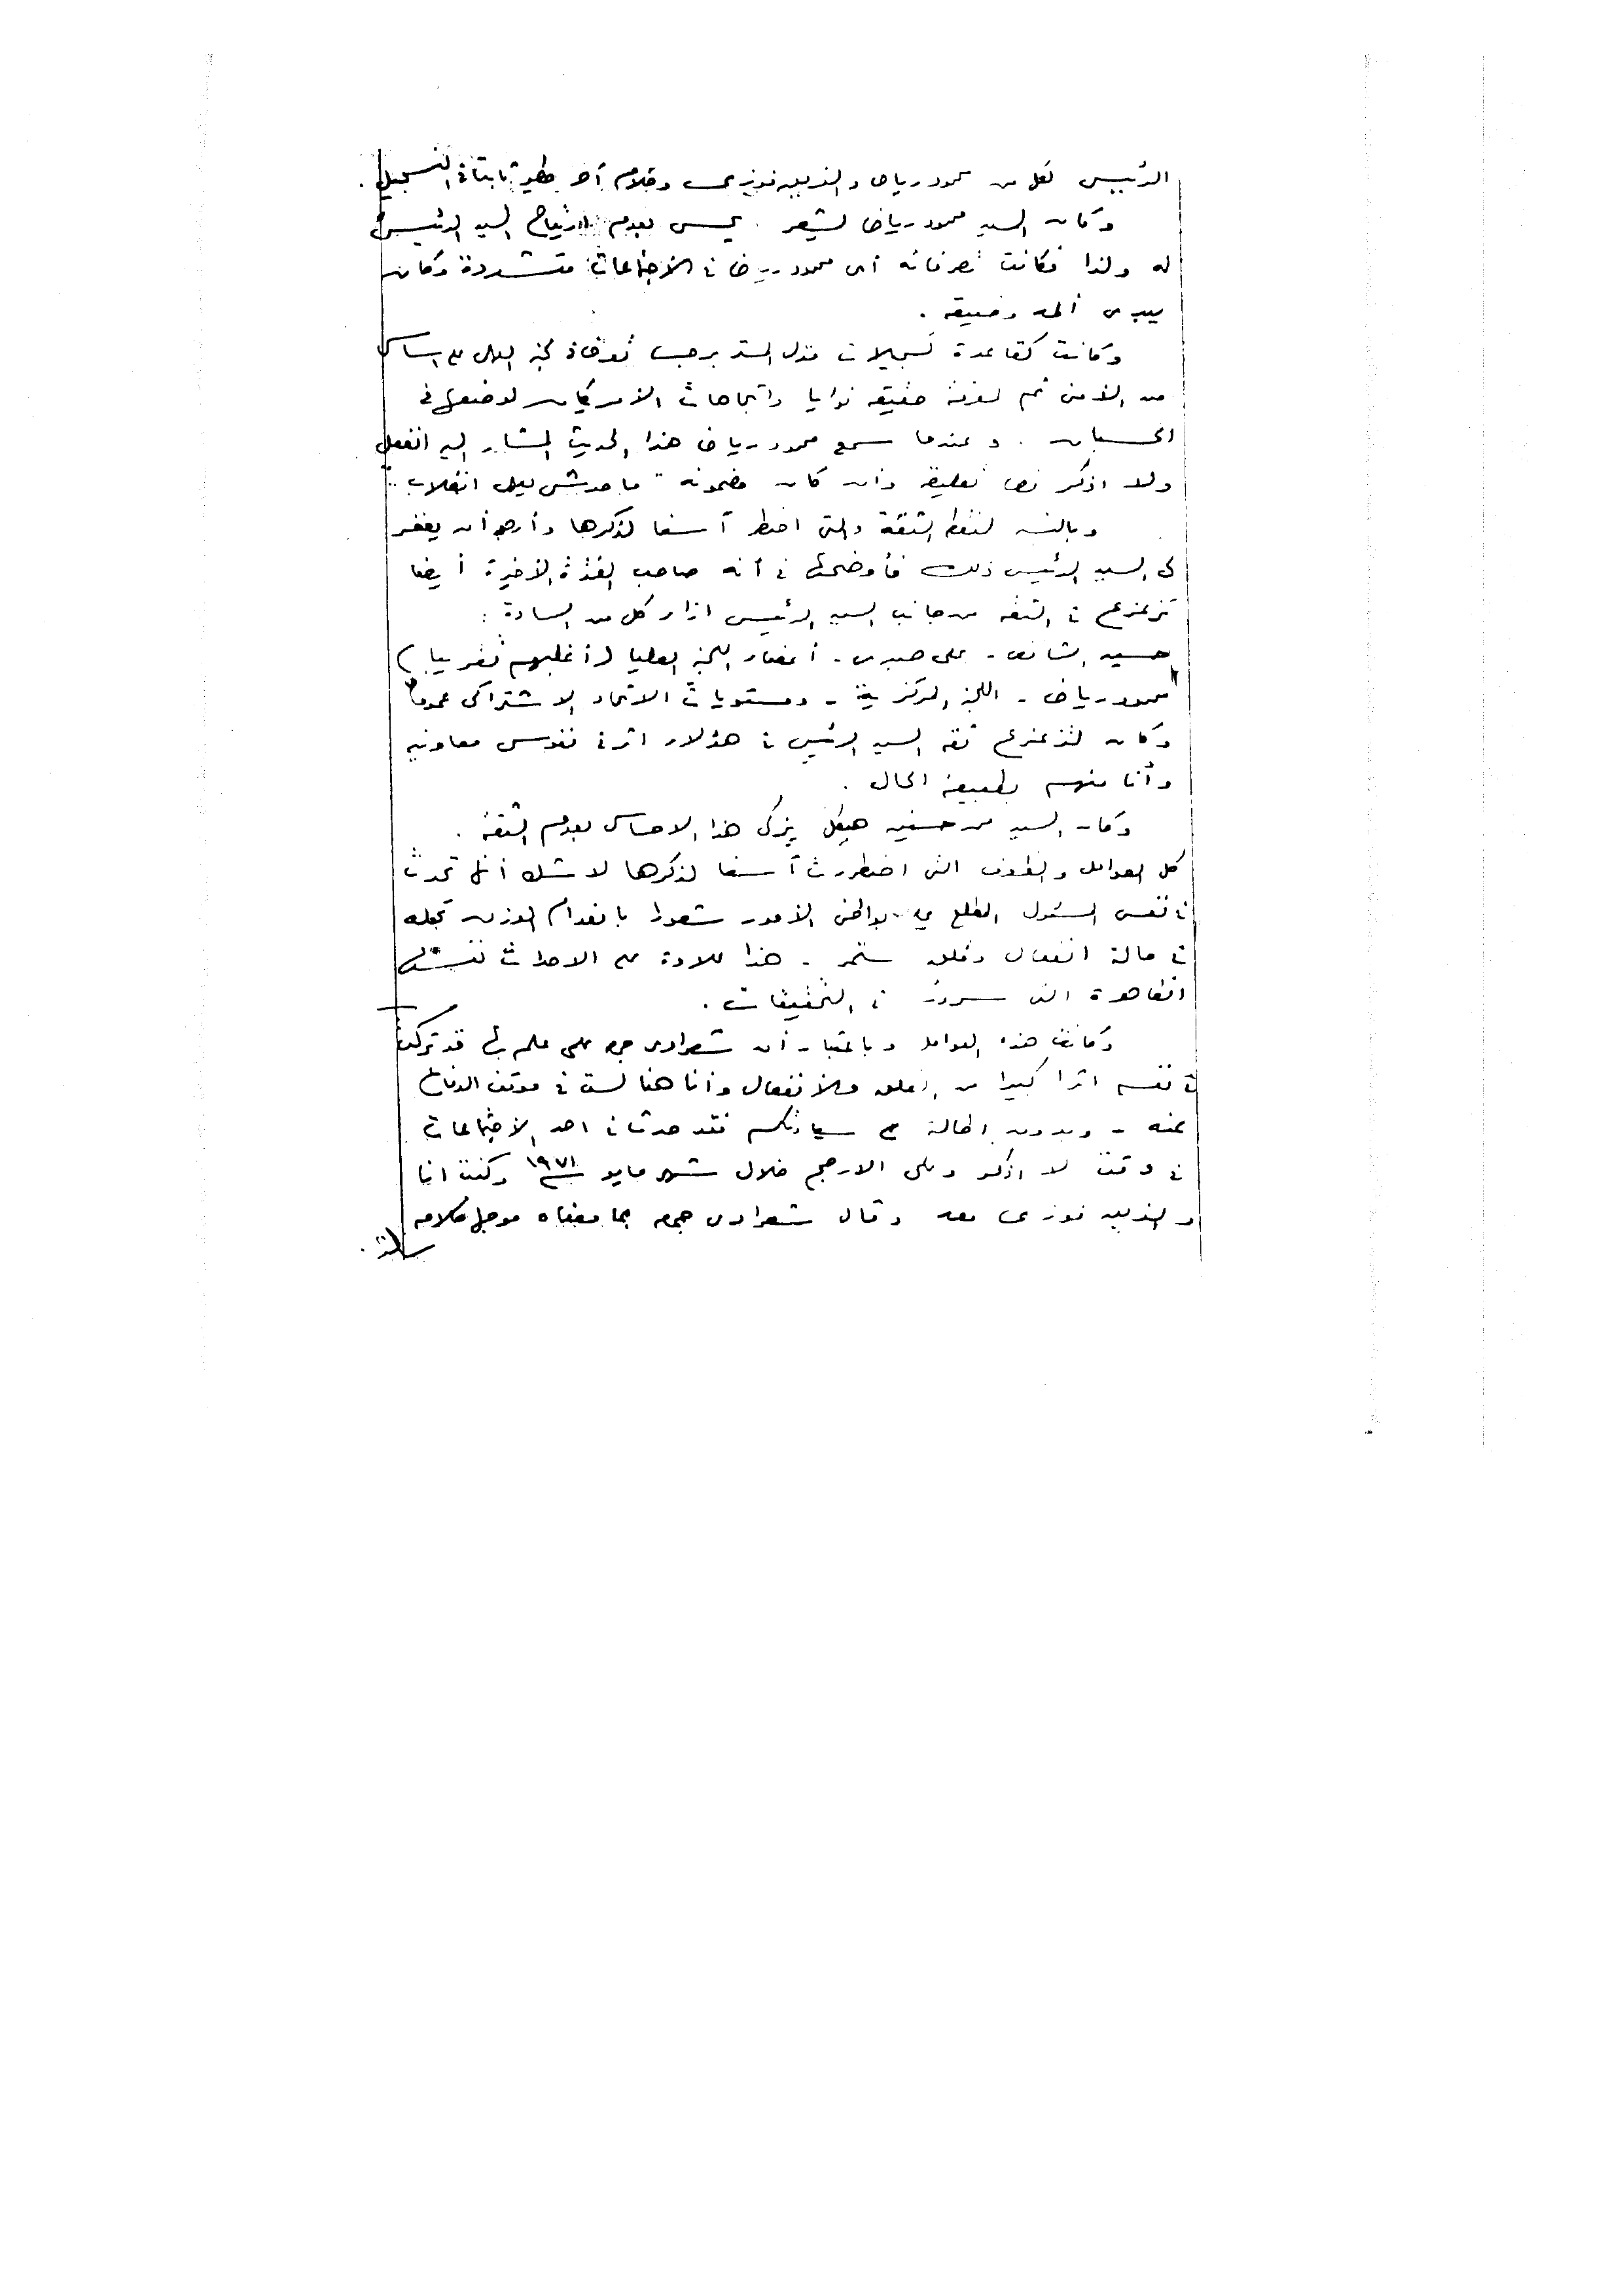 الرئيس لكل من محمود رياض والفريق فوزى وكلام آخر خطير ثابتا فى التسجيل .
وكان السيد محمود رياض يشعر . يحس بعدم ارتياح السيد الرئيس
له ولذا فكانت تصرفاته أى محمود رياض فى الاجتماعات متشددة وكان
يبدى ألمه وضيقه .
وكانت كقاعدة تسجيلات منزل المستر برجس تعرض فى لجنة العمل على أساس
من الأمن ثم لمعرفة حقيقة نوايا واتجاهات الأمريكان لوضعها فى
الحسبان . وعندما سمع محمود رياض هذا الحديث المشار اليه انفعل
ولا اذكر نص تعليقه وان كان مضمونه " ماحدش يعمل انقلاب "
وبالنسبة لنقطة الثقة والتى اضطر آسفا لذكرها وأرجو أن يغفر
لى السيد الرئيس ذلك فأوضحها فى أنه صاحب الفترة الأخيرة أيضا
تزعزع فى الثقة من جانب السيد الرئيس ازاء كل من السادة :
حسين الشافعى - على صبرى - أعضاء اللجنة العليا ( أغلبهم تقريبا )
محمود رياض - اللجنة المركزية - ومستويات الاتحاد الاشتراكى عموما
وكان لتزعزع ثقة السيد الرئيس فى هؤلاء اثر فى نفوس معاونيه
وأنا منهم بطبيعة الحال .
وكان السيد محمد حسنين هيكل يزكى هذا الاحساس بعدم الثقة .
كل العوامل والظروف التى اضطررت آسفا لذكرها لا شك أنها تحدث
فى نفس المسئول المطلع على بواطن الأمور شعورا بانعدام الوزن تجعله
فى حالة انفعال وقلق مستمر . هذا علاوة على الاحداث
الظاهرة التى سردت فى التحقيقات .
وكانت هذه العوامل وباعتبار أن شعراوى جمعه على علم بها قد تركت
فى نفسه اثرا كبيرا من القلق والانفعال وأنا هنا لست فى موقف الدفاع
عنه - وبدون اطالة على سيادتكم فقد حدث فى احد الاجتماعات
فى وقت لا اذكره وعلى الارجح خلال شهر مايو ١٩٧١ وكنت انا
والفريق فوزى معه وقال شعراوى جمعه بما معناه موجها كلامه